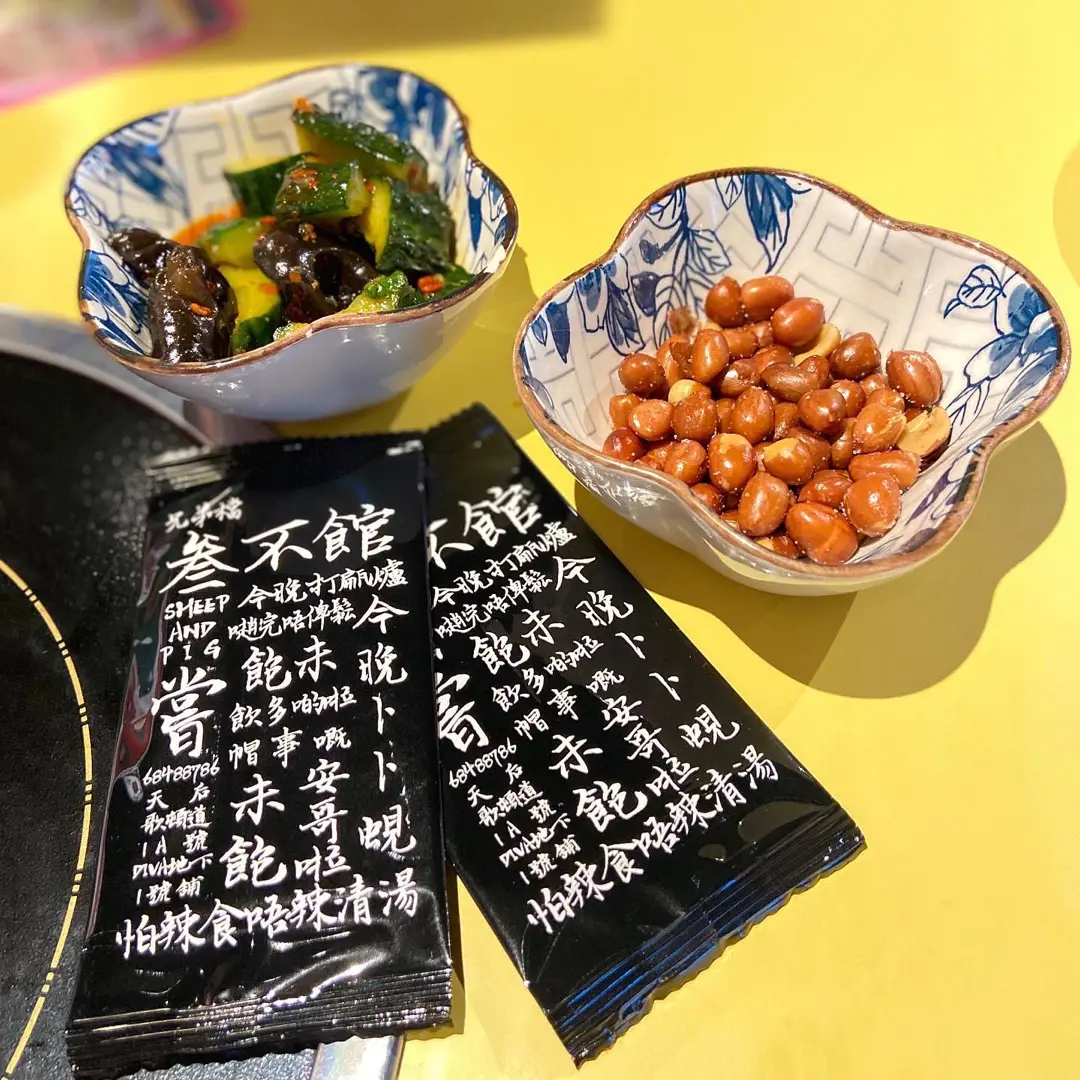 兄弟檔
叁不館
SHEEP
AND
PIG
嘗
68488786
天后
歌頓道
1A 號
DIVA地下
1號舖
今晚打甂爐
完唔俾鬆
今晚卜卜蜆
未飽
飲多啲啦
帽事嘅
安哥啦
未飽
怕辣食唔辣清湯
不館
嘗
68488786
天后
歌頓道
1A 號
DIVA地下
1號舖
今晚打甂爐
完唔俾鬆
今晚卜卜蜆
未飽
飲多啲啦
帽事嘅
安哥啦
未飽
怕辣食唔辣清湯